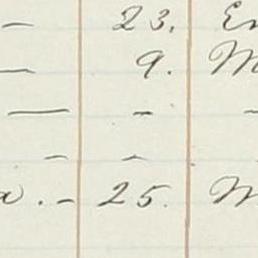 – 23. En
— 9. M
— – –
– –
a. – 25. M